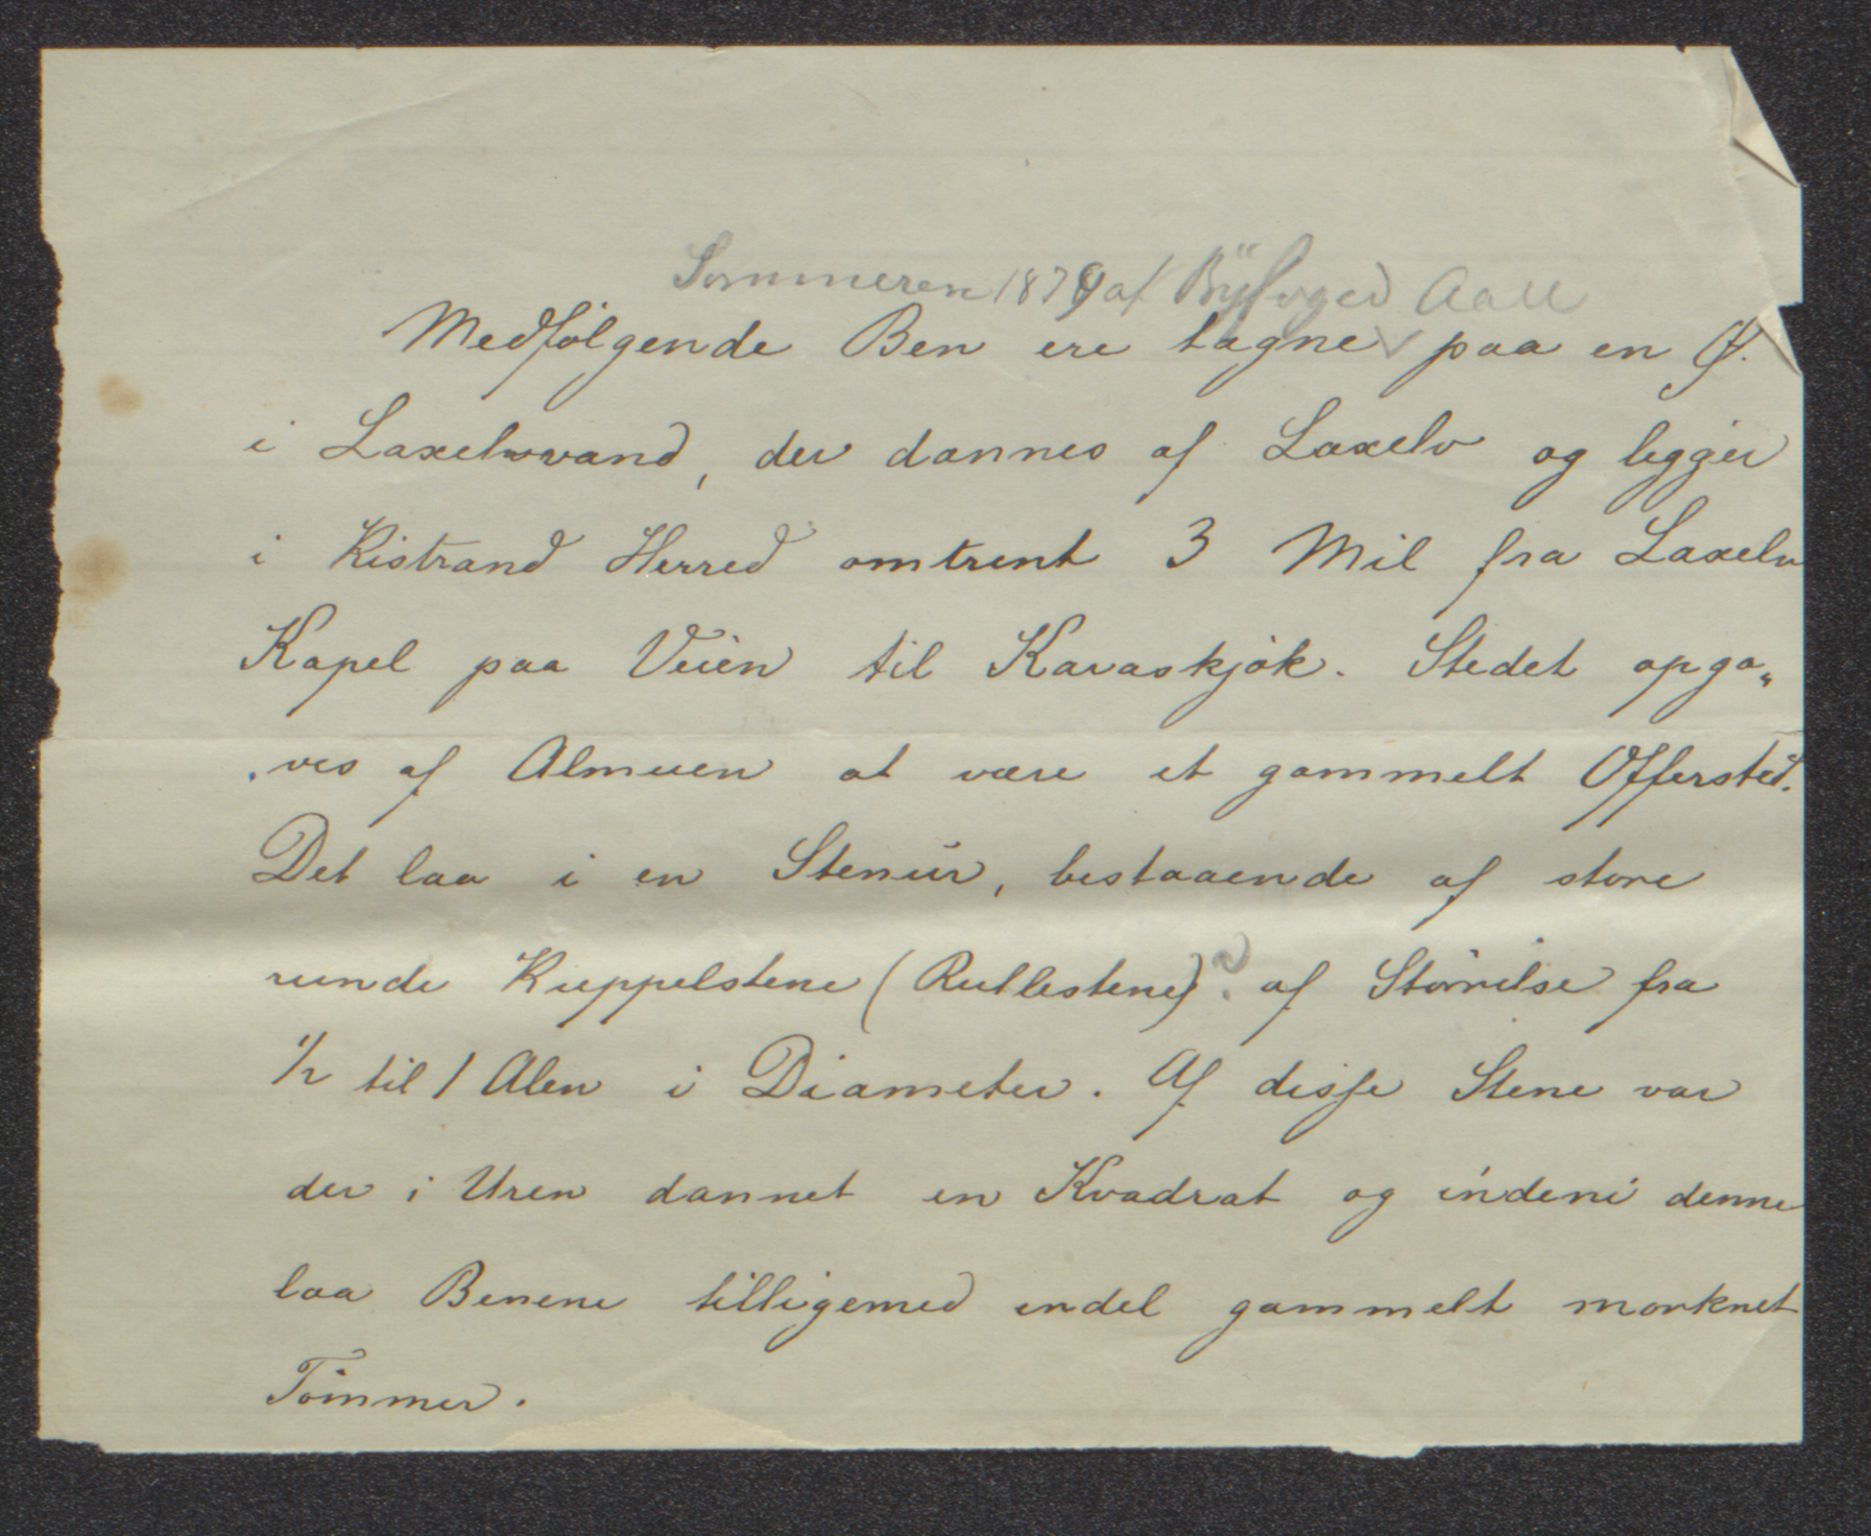 Sommeren 1879 af Byfoged Aall
Medfølgende Ben ere tagne paa en Ø.
i Laxelvvand, der dannes af Laxelv og ligger
i Kistrand Herred omtrent 3 Mil fra Laxelv
Kapel paa Veien til Karaskjøk. Stedet opga„
„ves af Almuen at være et gammelt Offersted.
Det laa i en Stenur, bestaaende af store
runde Kuppelstene (Rullestene) af Størrelse fra
1/2 til 1 Alen i Diameter. Af disse Stene var
der i Uren dannet en Kvadrat og indeni denne
laa Benene tilligemed endel gammelt morknet
Tømmer.